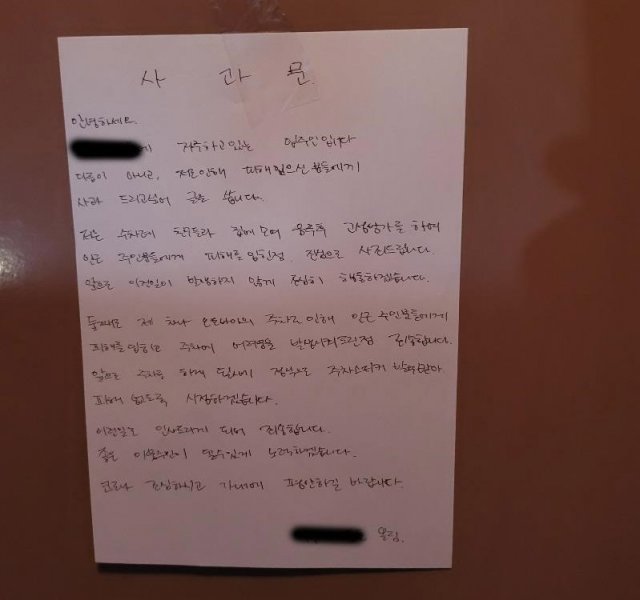 사 과 문.
안녕하세요.
에 거주하고있는 입주인입니다
다름이 아니고, 저로인해 피해입으신분들에게
사과 드리고싶어 글을 씁니다.
저는 수차례 친구들과 집에 모여 음주후 고성방가를 하여
인근 주민분들에게 피해를 입힌점 진심으로 사죄드립니다.
앞으로 이런일이 발생하지 않게 조심히 행동하겠습니다.
둘째로 제 차나 오토바이의 주차로 인해 인근 주민분들에게
피해를 입히고 주차에 어려움을 발생시켜드린점 죄송합니다.
앞으로 주차를 하게 될시에 정식으로 주차스티커 발부받아
피해 없도록 시정하겠습니다.
이런일로 인사드리게 되어 죄송합니다.
좋은 이웃주민이 될수있게 노력하겠습니다.
코로나 조심하시고 가내에 평안하길 바랍니다.
올림.